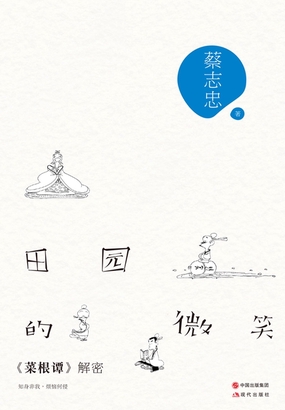 蔡志忠
著
田园
的微笑
《菜根谭》解密
知身非我·烦恼何侵
中国出版集团
现代出版社